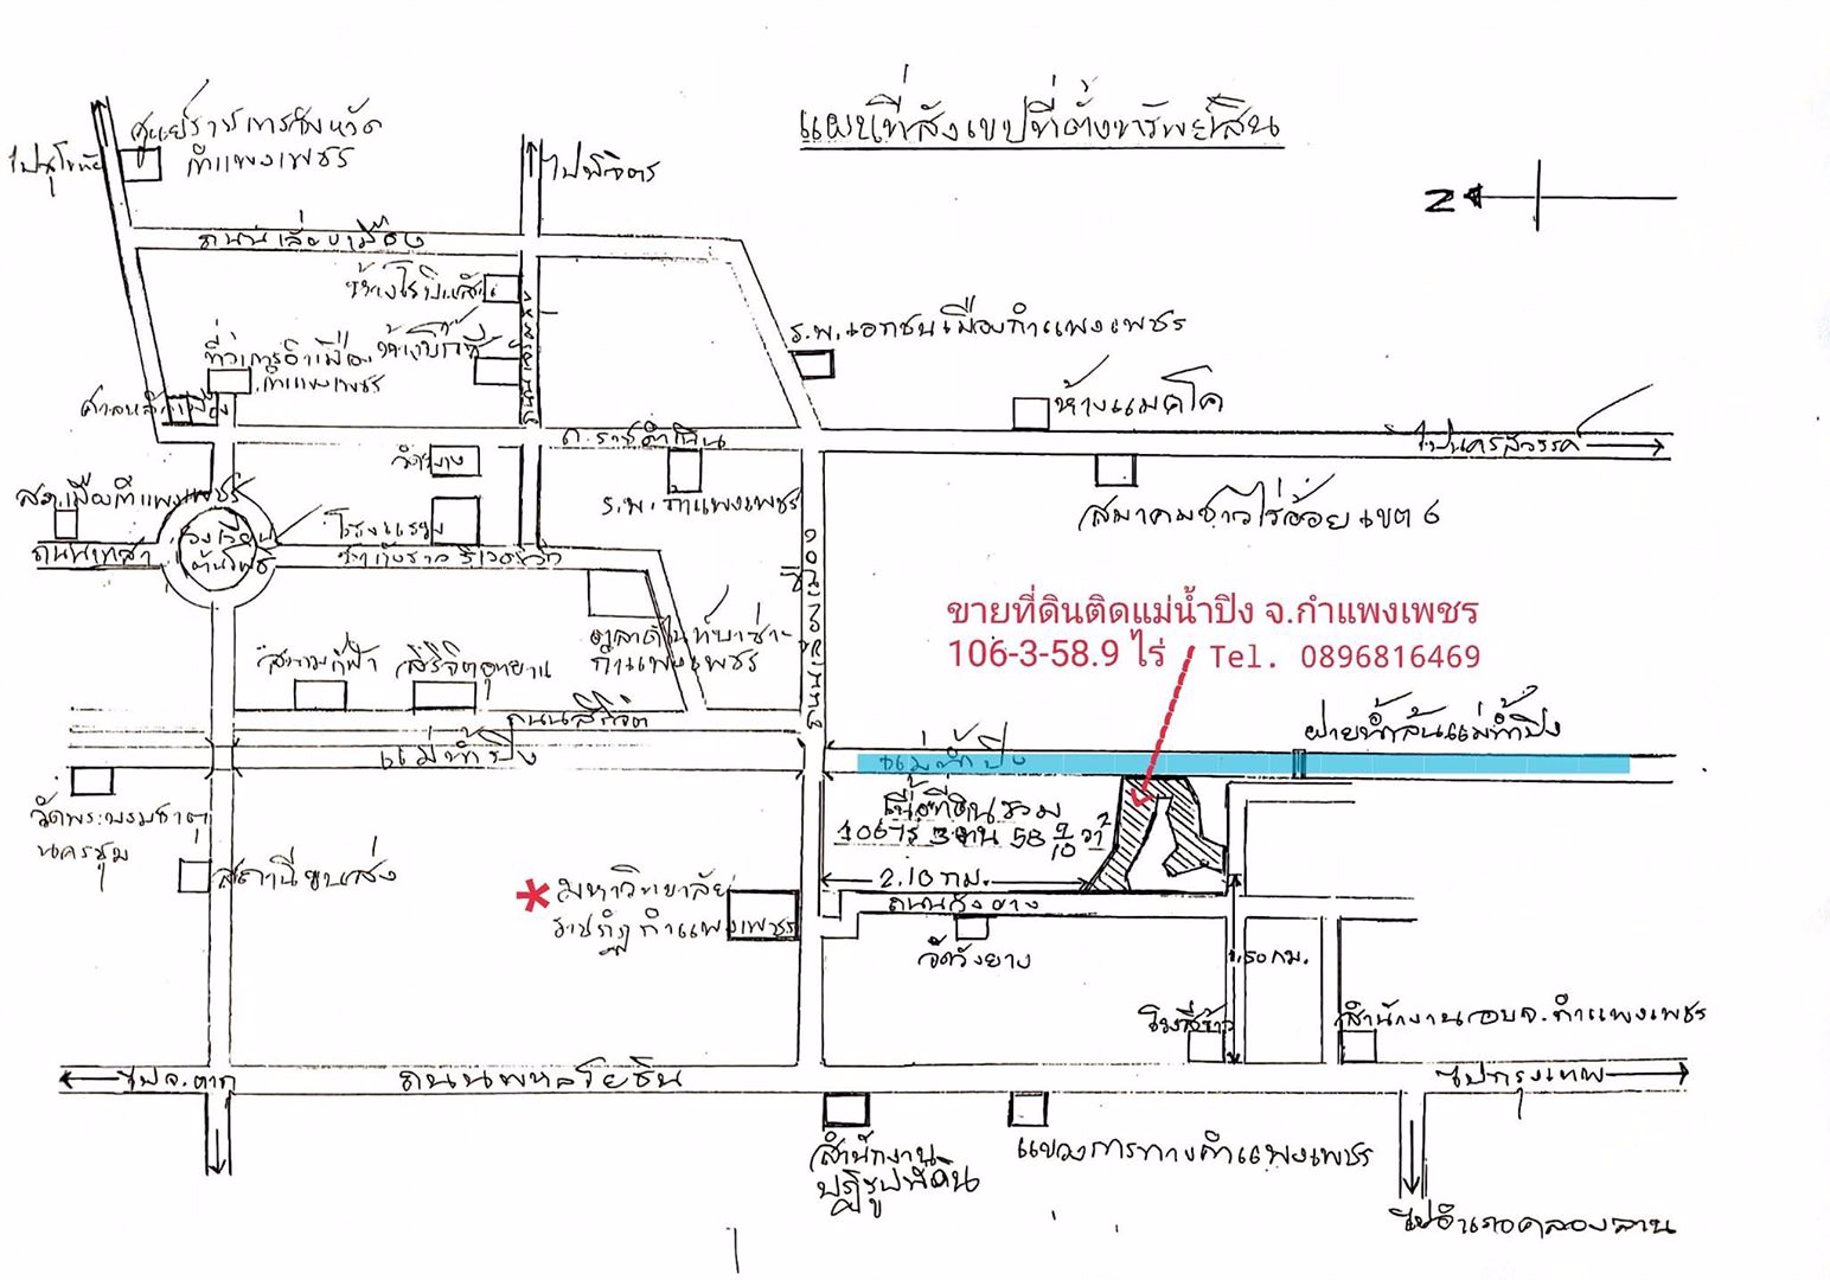 แผนที่สังเขปที่ตั้งทรัพย์สิน
ศูนย์ราชการจังหวัด
กำแพงเพชร
ไปสุโขทัย
ไปพิจิตร
N
ถนนเลี่ยงเมือง
ห้างโรบินสัน
ที่ว่าการอำเภอเมือง
กำแพงเพชร
ห้างบิ๊กซี
ร.พ.เอกชนเมืองกำแพงเพชร
ห้างแมคโค
ศาลหลักเมือง
ถ.ราชดำเนิน
ไปนครสวรรค์
วัดบาง
ร.พ.กำแพงเพชร
สมาคมชาวไร่อ้อยเขต 6
สภ.เมืองกำแพงเพชร
วงเวียน
ต้นโพธิ์
โรงแรม
ชากังราวริเวอร์วิว
ถนนเทศา
ขายที่ดินติดแม่น้ำปิง จ.กำแพงเพชร
106-3-58.9 ไร่ Tel. 0896816469
ตลาดไนท์บาซ่า
กำแพงเพชร
สนามกีฬา
สิริจิตอุทยาน
ถนนสิริจิต
ฝายน้ำล้นแม่น้ำปิง
แม่น้ำปิง
แม่น้ำปิง
เนื้อที่ดินรวม
106 ไร่ 3 งาน 58 9/10 วา2
วัดพระบรมธาตุ
นครชุม
สถานีขนส่ง
* มหาวิทยาลัย
ราชภัฏกำแพงเพชร
2.10 กม.
ถนนวังยาง
วัดวังยาง
1.50 กม.
โรงสีข้าว
สำนักงาน อบจ.กำแพงเพชร
ไปจ.ตาก
ถนนพหลโยธิน
ไปกรุงเทพ
สำนักงาน
ปฏิรูปที่ดิน
แขวงการทางกำแพงเพชร
ไปอำเภอคลองลาน